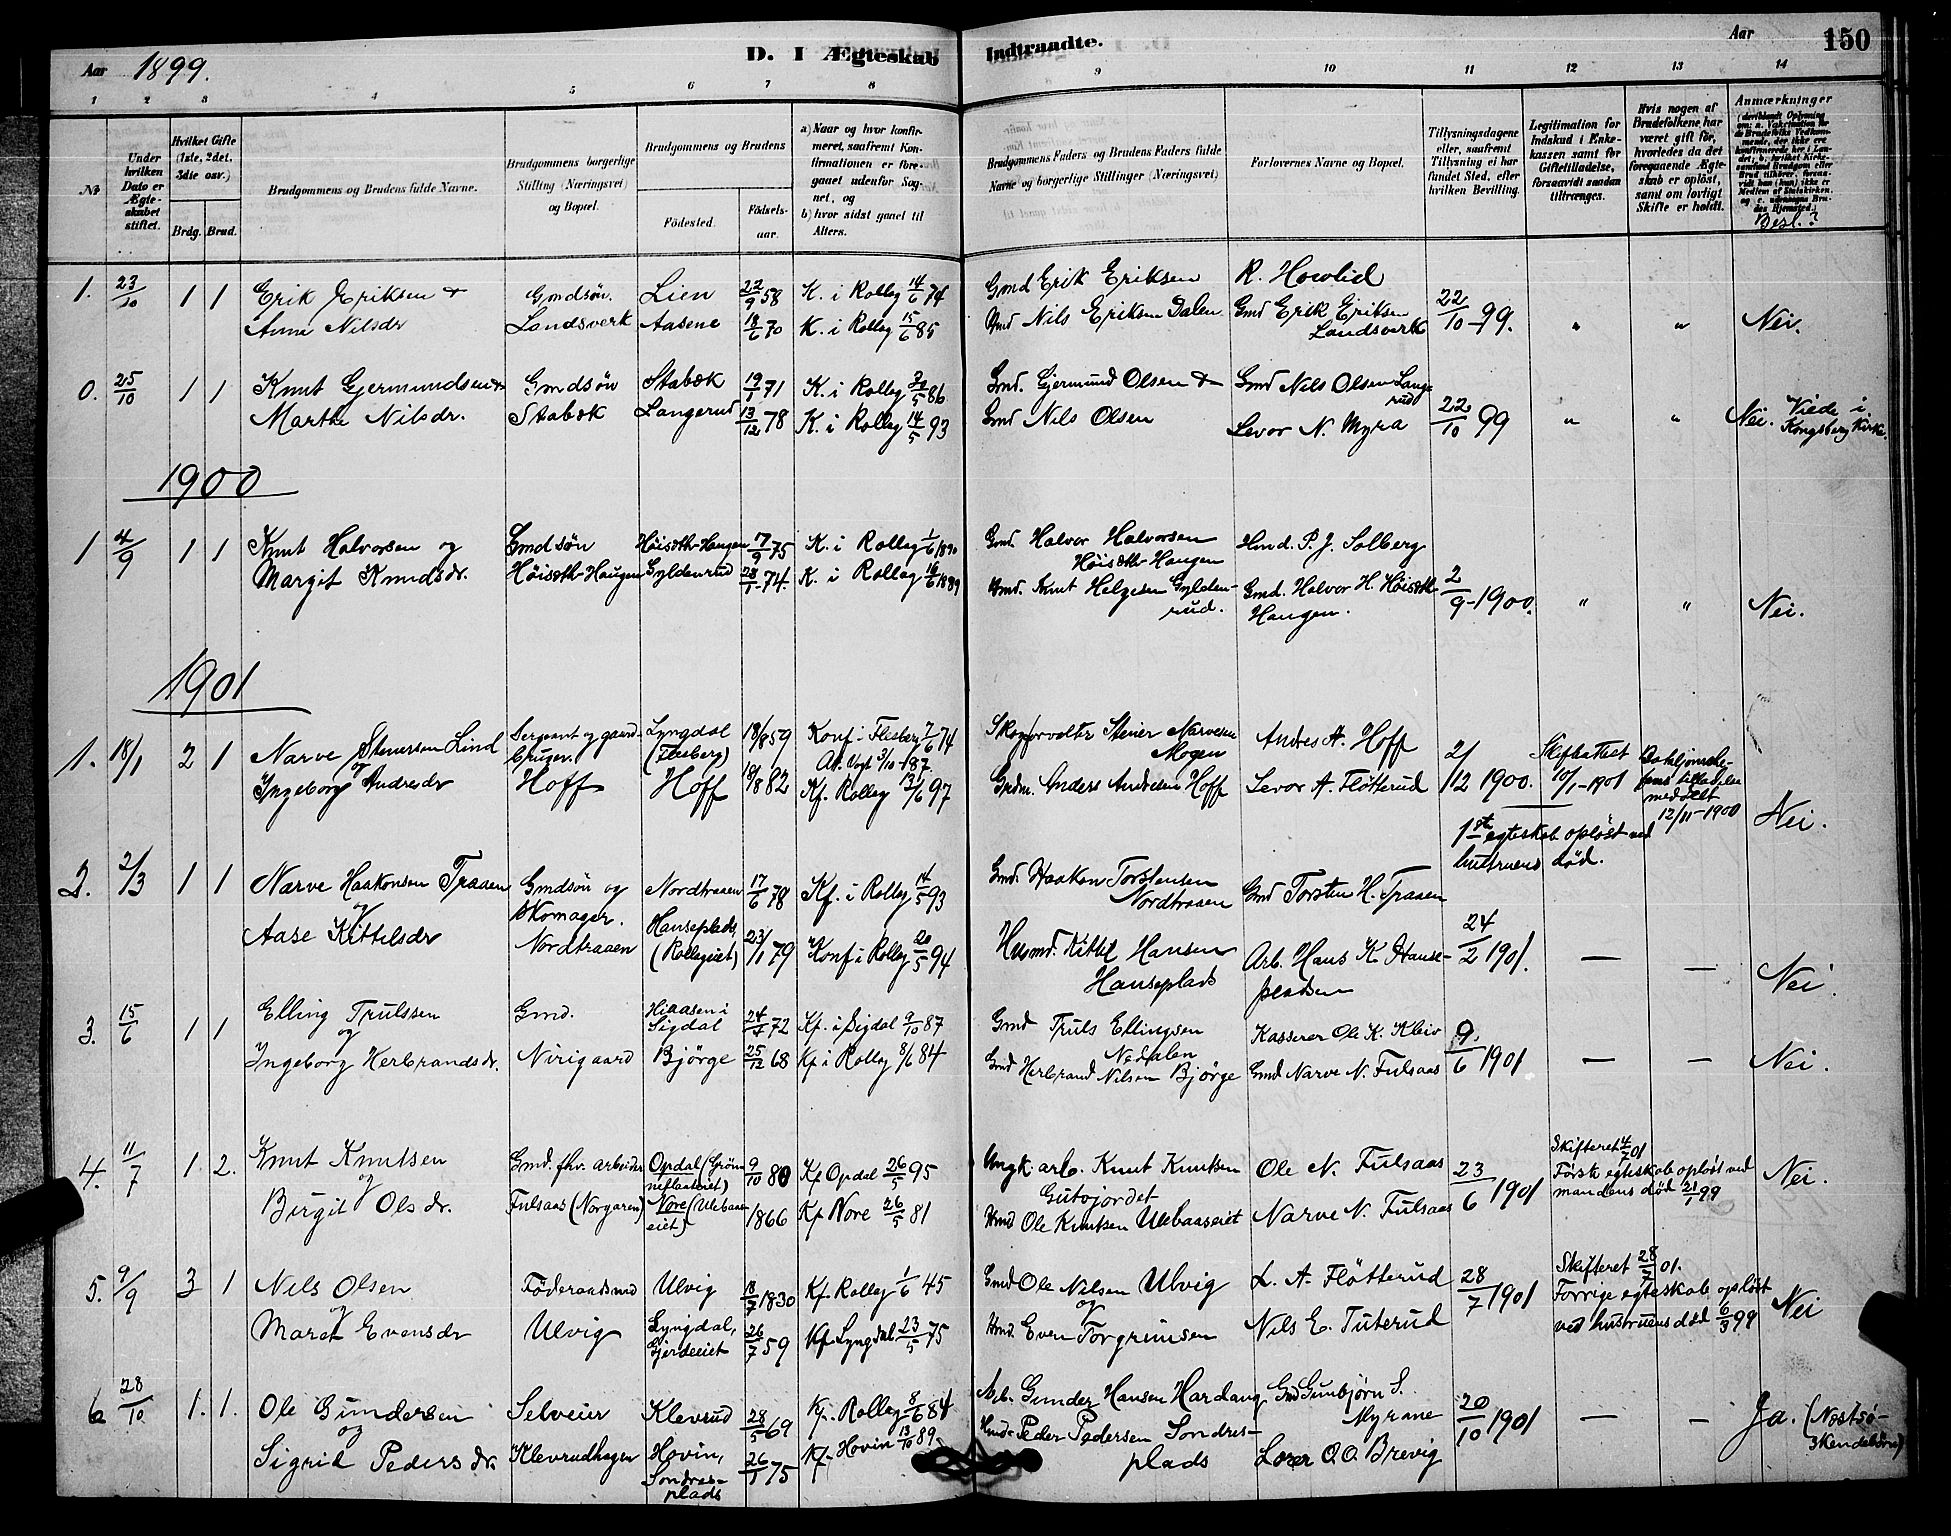 Aar 1899. D. I Ægteskab Indtraadte. Aar 150
1 2 3 4 5 6 7 8 9 10 11 12 13 14
№
Under hvilken Dato er Ægteskabet stiftet.
Hvilket Gifte (1ste, 2det, 3die osv.)
Brdg. Brud.
Brudgommens og Brudens fulde Navne.
Brudgommens borgerlige Stilling (Næringsvei) og Bopæl.
Brudgommens og Brudens
Födested. Födsels-aar.
a) Naar og hvor konfirmeret, saafremt Konfirmationen er foregaaet udenfor Sognet, og
b) hvor sidst gaaet til Alters.
Brudgommens Faders og Brudens Faders fulde Navne og borgerlige Stillinger (Næringsvei)
Forlovernes Navne og Bopæl.
Tillysningsdagene eller, saafremt Tillysning ei har fundet Sted, efter hvilken Bevilling.
Legitimation for Indskud i Enkekassen samt for Giftetilladelse, forsaavidt saadan tiltrænges.
Hvis nogen af Brudefolkene har været gift för, hvorledes da det foregaaende Ægteskab er oplöst, samt om lovligt Skifte er holdt.
Anmærkninger
Besl.?
1. 23/10 1 1 Erik Eriksen & Gmdsøn. Lien 22/9 58 K. i Rollag 14/6 74 Gmd Erik Eriksen R. Howlid
Anne Nilsdr Landsverk Aasene 18/6 70 K. i Rollag 15/6 85 Hmd Nils Eriksen Dalen Gmd Erik Eriksen Landsverk 22/10 - 99. " " Nei.
0. 25/10 1 1 Knut Gjermundsen & Gmdsøn Stabæk 19/1 71 K. i Rollag 5 86 Gmd. Gjermund Olsen & Gmd Nils Olsen Langrud
Marthe Nilsdr. Stabæk Langerud 13/12 78 K. i Rollag 14/5 93 Gmd Nils Olsen Levor N. Myra 22/10 99 " " Nei. Viede i Kongsberg Kirke.
1900
1 4/9 1 1 Knut Halvorsen og Gmdsøn Høisæth-Haugen 17/9 75 K. i Rollag 1/6 1890 Gmd. Halvor Halvorsen Høisæth-Haugen Hmd. P. J. Solberg
Margit Knudsdr. Høisæth-Haugen Gyldenrud 28/1 - 74. K. i Rollag 16/6 1889 Hmd. Knut Helgesen Gyldenrud. Gmd. Halvor H. Høisæth-Haugen. 2/9 - 1900. " " Nei.
1901
1. 18/1 2 1 Narve Stenersen Lind og Sergeant og gaardbruger. Lyngdal (Flesberg) 18/8 59 Konf. i Flesberg 7/6 74 Skogforvalter Steiner Narvesen Mogen Andres A. Hoff
Ingeborg Andresdr Hoff Hoff 18/8 82 Kf. Rollag 13/6 97 Grdm. Anders Andresen Hoff Levor A. Fløtterud 2/12 1900. Skifteattest 10/1 - 1901 meddelt 12/11 - 1900 Nei.
1ste egteskab opløst ved hustruens død.
2. 2/3 1 1 Narve Haakonsen Traaen og Gmdsøn og skomager. Nordtraaen 17/6 78 Kf. i Rollag 14/5 93 Gmd. Haaken Torstensen Nordtraaen Gmd Torsten H. Traaen
Aase Kittelsdr Nordtraaen Hanseplads, (Rollageiet) 23/1 79 Konf i Rollag 20/5 94 Husmd. Kittil Hansen Hanseplads Arb. Hans K. Hansepladsen 24/2 1901. — — Nei.
3. 15/6 1 1 Elling Trulssen og Gmd. Hiaasen i Sigdal 24/4 72 Kf. i Sigdal 9/10 87 Gmd Truls Ellingsen Nedalen Kasserer Ole K. Kleiv
Ingeborg Herbrandsdr. Nirigaard Bjørge 25/12 68 Kf i Rollag 8/6 84 Gmd Herbrand Nilsen Bjørge Gmd Narve N. Fulsaas 9/6 1901 — — Nei.
4. 11/7 1. 2. Knut Knutsen og Gmd. fhv. arbeider Opdal 9/10 80 Kf Opdal 26/5 95 Ungk. arb. Knut Knutsen Gutojordet Ole N. Fulsaas
Birgit Olsdr. Fulsaas (Norgaren) Nore (Ulebaaseiet) 1866 Kf Nore 26/5 81 Hmd Ole Knutsen Ulebaaseiet Narve N. Fulsaas 23/6 1901 Skifteret 4/7 01 Første egteskab opløst ved mandens død 21/1 99 Nei.
5. 9/9 3 1 Nils Olsen og Føderaadsmd Ulvig 18/7 1830 Kf Rollag 1/6 45 Gmd Ole Nilsen Ulvig og L. A. Fløtterud
Maret Evensdr Ulvig Lyngdal, Gjerdeeiet 26/7 59 Kf Lyngdal 23/5 75 Hmd. Even Torgrimsen Nils E. Tuterud 28/7 1901 Skifteret 28/7 01. Forrige egteskab opløst ved hustruens død 6/3 99 Nei
6 28/10 1. 1. Ole Gundersen og Selveier Klevrud 28/5 69 Kf. Rollag 8/6 84 Gunder Hansen Hardang Gmd Gunbjørn S. Myrane
Sigrid Pedersdr. Klevrudhagen Hovin, Sondresplads 26/1 75 Kf Hovin 13/10 89 Hmd. Peder Pedersen Sondresplads Lærer O. O. Brevig 20/10 1901 — — Ja. (Næstsøskendebørn)